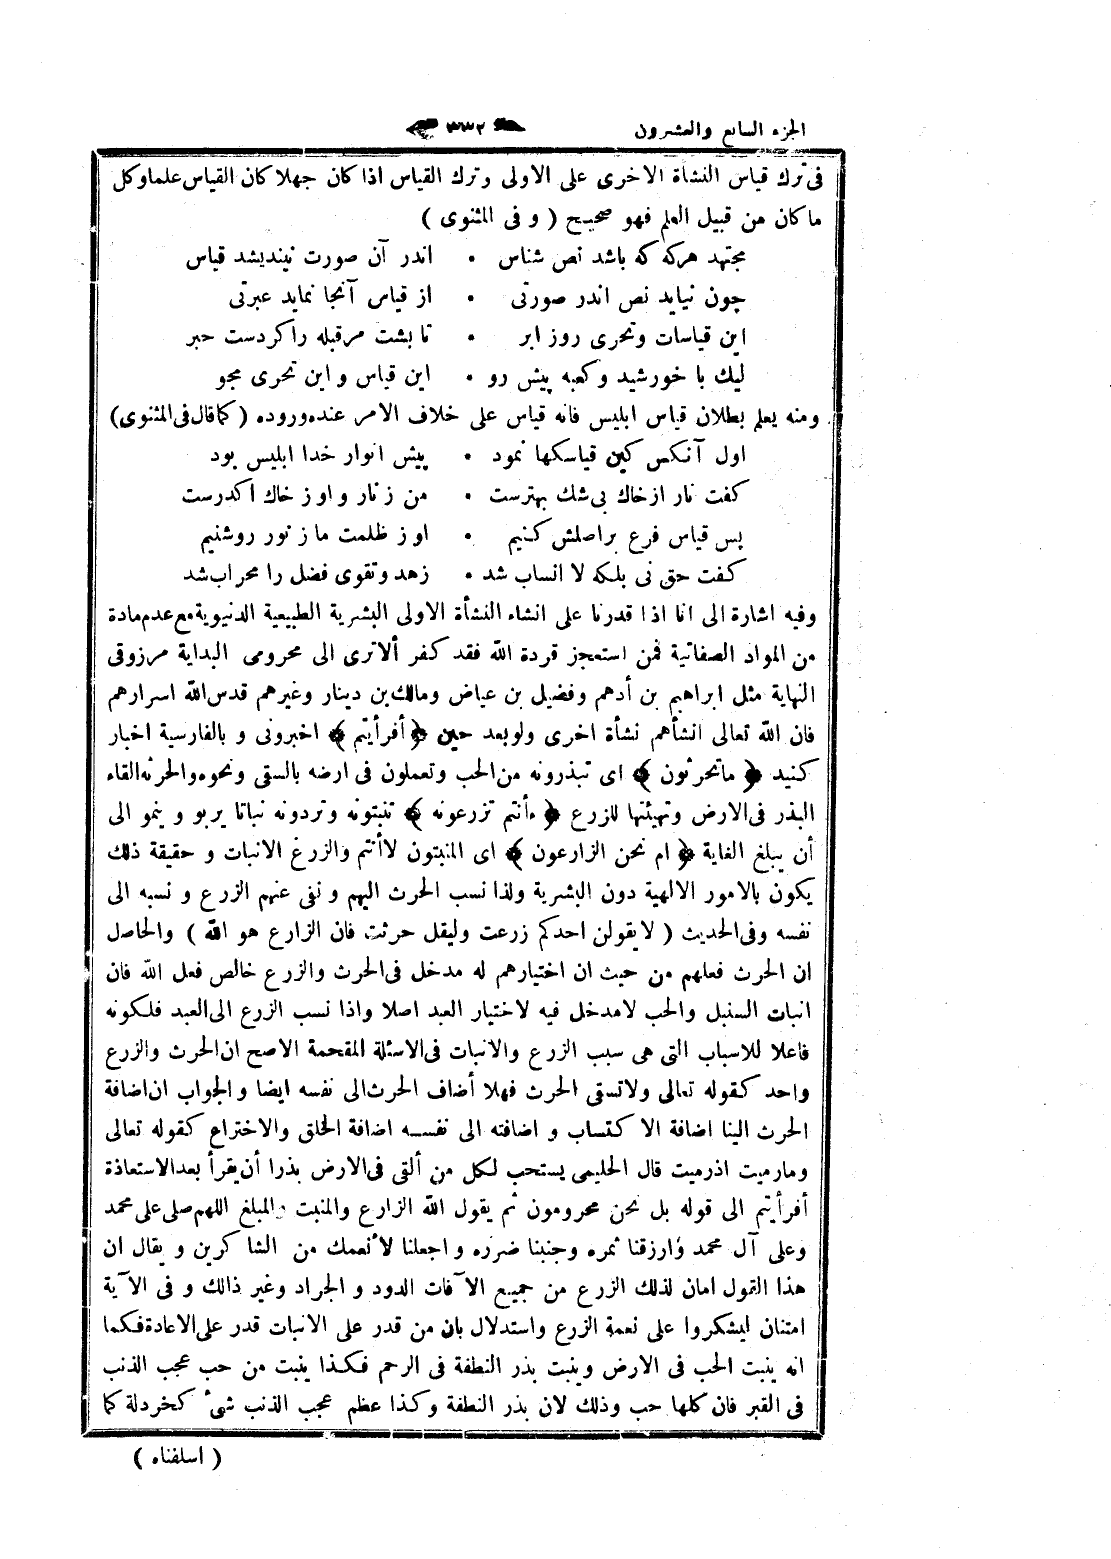 الجزء السابع والعشرون ٣٣٢
فى ترك قياس النشأة الاخرى على الاولى وترك القياس اذا كان جهلا كان القياس علما وكل
ما كان من قبيل العلم فهو صحيح ( وفى المثنوى )
مجتهد هركه كه باشد نص شناس • اندر آن صورت نينديشد قياس
چون نيايد نص اندر صورتى • از قياس آنجا نمايد عبرتى
اين قياسات وتحرى روز ابر • تا بشت مر قبله را كردست حبر
ليك با خورشيد وكعبه پيش رو • اين قياس و اين تحرى مجو
ومنه يعلم بطلان قياس ابليس فانه قياس على خلاف الامر عنده وروده ( كما قال فى المثنوى )
اول آنكس كين قياسكها نمود • پيش انوار خدا ابليس بود
كفت نار از خاك بى شك بهترست • من ز نار و او ز خاك اكدرست
پس قياس فرع بر اصلش كنيم • او ز ظلمت ما ز نور روشنيم
كفت حق نى بلكه لا انساب شد • زهد وتقوى فضل را محراب شد
وفيه اشارة الى انا اذا قدرنا على انشاء النشأة الاولى البشرية الطبيعية الدنيوية مع عدم مادة
من المواد الصفاتية فمن استعجز قردة الله فقد كفر ألا ترى الى محرومى البداية مرزوقى
النهاية مثل ابراهيم بن أدهم وفضيل بن عياض ومالك بن دينار وغيرهم قدس الله اسرارهم
فان الله تعالى انشأهم نشأة اخرى ولو بعد حين ﴿ أفرأيتم ﴾ اخبرونى و بالفارسية اخبار
كنيد ﴿ ما تحرثون ﴾ اى تبذرونه من الحب وتعملون فى ارضه بالسقى ونحوه والحرثه القاء
البذر فى الارض وتهيئتها للزرع ﴿ ءأنتم تزرعونه ﴾ تنبتونه وتردونه نباتا يربو و ينمو الى
أن يبلغ الغاية ﴿ ام نحن الزارعون ﴾ اى المنبتون لا أنتم والزرغ الانبات و حقيقة ذلك
يكون بالامور الالهية دون البشرية ولذا نسب الحرث اليهم و نفى عنهم الزرع و نسبه الى
نفسه وفى الحديث ( لا يقولن احدكم زرعت وليقل حرثت فان الزارع هو الله ) والحاصل
ان الحرث فعلهم من حيث ان اختيارهم له مدخل فى الحرث والزرع خالص فعل الله فان
انبات السنبل والحب لا مدخل فيه لاختيار العبد اصلا واذا نسب الزرع الى العبد فلكونه
فاعلا للاسباب التى هى سبب الزرع والانبات فى الاسئلة المقحمة الاصح ان الحرث والزرع
واحد كقوله تعالى ولا تسقى الحرث فهلا أضاف الحرث الى نفسه ايضا و الجواب ان اضافة
الحرث الينا اضافة الاكتساب و اضافته الى نفسه اضافة الخلق والاختراع كقوله تعالى
وما رميت اذ رميت قال الحليمى يستحب لكل من ألقى فى الارض بذرا أن يقرأ بعد الاستعاذة
أفرأيتم الى قوله بل نحن محرومون ثم يقول الله الزارع والمنبت والمبلغ اللهم صلى على محمد
وعلى آل محمد وارزقنا ثمره وجنبنا ضرره و اجعلنا لأنعمك من الشاكرين و يقال ان
هذا القول امان لذلك الزرع من جميع الآفات الدود و الجراد وغير ذالك و فى الآية
امتنان ليشكروا على نعمة الزرع واستدلال بان من قدر على الانبات قدر على الاعادة فكما
انه ينبت الحب فى الارض وينبت بذر النطفة فى الرحم فكذا ينبت من حب عجب الذنب
فى القبر فان كلها حب وذلك لان بذر النطفة وكذا عظم عجب الذنب شئ كخردلة كما
( اسلفناه )